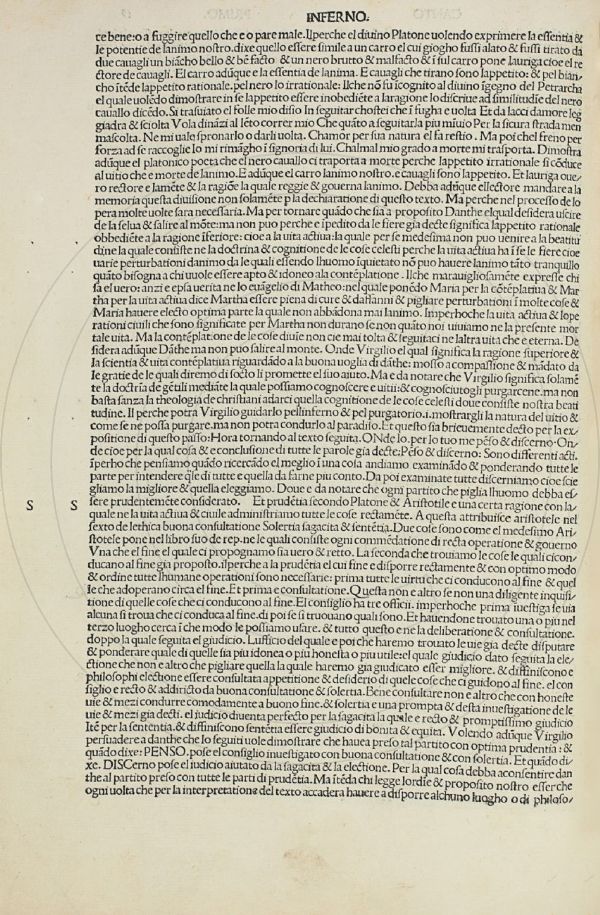 INFERNO.
te bene: o a fuggire quello che e o pare male. Ilperche el diuino Platone uolendo exprimere la essentia &
le potentie de lanimo nostro. dixe quello essere simile a un carro el cui giogho fussi alato & fussi tirato da
due cauagli un biãcho bello & bẽ facto & un nero brutto & malfacto & i sul carro pone lauriga cioe el re
ctore de cauagli. El carro adũque e la essentia de lanima. E cauagli che tirano sono lappetito: & pel bian/
cho ítẽde lappetito rationale. pel nero lo irrationale: Ilche nõ fu ícognito al diuino ígegno del Petrarcha
el quale uolẽdo dimostrare in se lappetito essere inobediẽte a laragione lo discriue ad similitudíe del nero
cauallo dicẽdo. Si trasuiato el folle mio disio In seguitar chostei che í fugha e uolta Et da lacci damore leg
giadra & sciolta Vola dináзi al lẽto correr mio Che quãto a seguitarla piu míuio Per la sicura strada men
mascolta. Ne mi uale spronarlo o darli uolta. Chamor per sua natura el fa restio. Ma poi chel freno per
forza ad se raccoglie Io mi rimãgho í signoria di lui. Chalmal mio grado a morte mi trasporta. Dimostra
adũque el platonico poeta che el nero cauallo ci traporta a morte perche lappetito irrationale si cõduce
al uitio che e morte de lanimo. E adũque el carro lanimo nostro. e cauagli sono lappetito. Et lauriga oue/
ro rectore e lamẽte & la ragiõe la quale reggie & gouerna lanimo. Debba adũque ellectore mandare a la
memoria questa diuisione non solamẽte p la dechiaratione di questo texto. Ma perche nel processo de lo
pera molte uolte sara necessaria. Ma per tornare quãdo che sia a proposito Danthe elqual desidera uscire
de la selua & salire al mõte: ma non puo perche e ípedito da le fiere gia decte significa lappetito rationale
obbediẽte a la ragione íferiore: cioe a la uita actiua: la quale per se medesima non puo uenire a la beatitu
dine la quale consiste ne la doctrina & cognitione de le cose celesti perche la uita actiua ha í se le fiere cioe
uarie perturbationi danimo da le quali essendo lhuomo íquietato nõ puo hauere lanimo tãto tranquillo
quãto bisogna a chi uuole essere apto & idoneo ala contẽplatione. Ilche marauigliosamẽte expresse chi
fa el uero: anzi e epsa uerita ne lo euãgelio di Matheo: nel quale ponẽdo Maria per la cõtẽplatiua & Mar
tha per la uita actiua dice Martha essere piena di cure & daffanni & pigliare perturbationi í molte cose &
Maria hauere electo optima parte la quale non abbãdona mai lanimo. Imperhoche la uita actiua & lope
rationi ciuili che sono significate per Martha non durano se non quãto noi uiuiamo ne la presente mor
tale uita. Ma la contẽplatione de le cose diuíe non cie mai tolta & seguitaci ne laltra uita che e eterna. De
sidera adũque Dãthe ma non puo salire al monte. Onde Virgilio el qual significa la ragione superiore &
la scientia & uita contẽplatiua riguardãdo a la buona uoglia di dãthe: mosso a compassione & mãdato da
le gratie de le quali diremo di socto li promette el suo aiuto. Ma e da notare che Virgilio significa solamẽ
te la doctria de gẽtili mediãte la quale possiamo cognoscere e uitii: & cognosciutogli purgarcene. ma non
basta sanza la theologia de christiani adarci quella cognitione de le cose celesti doue consiste nostra beati
tudine. Il perche potra Virgilio guidarlo pellinferno & pel purgatorio. i. mostrargli la natura del uitio &
come se ne possa purgare. ma non potra condurlo al paradiso. Et questo sia brieuemente decto per la ex/
positione di questo passo: Hora tornando al texto seguita. ONde Io. per lo tuo me pẽso & discerno. On/
de cioe per la qual cosa & e conclusione di tutte le parole gia decte: Pẽso & discerno: Sono differenti acti.
íperho che pensiamo quãdo ricercãdo el meglio í una cosa andiamo examinãdo & ponderando tutte le
parte per intendere qĩle di tutte e quella da farne piu conto. Da poi examinate tutte discerniamo cioe scie
gliamo la migliore & quella eleggiamo. Doue e da notare che ogni partito che piglia lhuomo debba es/
S S sere prudentemẽte considerato. Et prudẽtia secondo Platone & Aristotile e una certa ragione con la/
quale ne la uita actiua & ciuile administriamo tutte le cose rectamẽte. A questa attribuisce aristotele nel
sexto de lethica buona consultatione Solertia sagacita & sentẽtia. Due cose sono come el medesimo Ari/
stotele pone nel libro suo de rep. ne le quali consiste ogni commẽdatione di recta operatione & gouerno
Vna che el fine el quale ci propognamo sia uero & retto. La seconda che trouiamo le cose le quali cicon/
ducano al fine gia proposto. ilperche a la prudẽtia el cui fine e disporre rectamente & con optimo modo
& ordine tutte lhumane operationi sono necessarie: prima tutte le uirtu che ci conducono al fine & quel
le che adoperano circa el fine. Et prima e consultatione. Questa non e altro se non una diligente inquisi/
tione di quelle cose che ci conducono al fine. El consiglio ha tre officii. imperhoche prima íuestiga se uia
alcuna si troua che ci conduca al fine. di poi se si truouano quali sono. Et hauendone trouato una o piu nel
terzo luogho cerca í che modo le possiamo usare. & tutto questo e ne la deliberatione & consultatione.
doppo la quale seguita el giudicio. Lufficio del quale e poi che haremo trouato le uie gia decte disputare
& ponderare quale di quelle sia piu idonea o piu honesta o piu utile: el quale giudicio dato seguita la ele/
ctione che non e altro che pigliare quella la quale haremo gia giudicato esser migliore. & diffiniscono e
philosophi electione essere consultata appetitione & desiderio di quelle cose che ci guidono al fine. el con
siglio e recto & addiricto da buona consultatione & solertia. Bene consultare non e altro che con honeste
uie & mezi condurre comodamente a buono fine. & solertia e una prompta & desta inuestigatione de le
uie & mezi gia decti. el iudicio diuenta perfecto per la sagacita la quale e recto & promptissimo giudicio
Itẽ per la sentẽtia. & diffiniscono sentẽtia essere giudicio di bonita & equita. Volendo adũque Virgilio
persuadere a danthe che lo seguiti uole dimostrare che hauea preso tal partito con optima prudentia: &
quãdo dixe: PENSO. pose el consiglio inuestigato con buona consultatione & con solertia. Et quãdo di/
xe. DISCerno pose el iudicio aiutato da la sagacita & la electione. Per la qual cosa debba aconsentire dan
the al partito preso con tutte le parti di prudẽtia. Ma ítẽda chi legge lordíe & proposito nostro esser che
ogni uolta che per la interpretatione del texto accadera hauere a disporre alchuno luogho o di philoso/